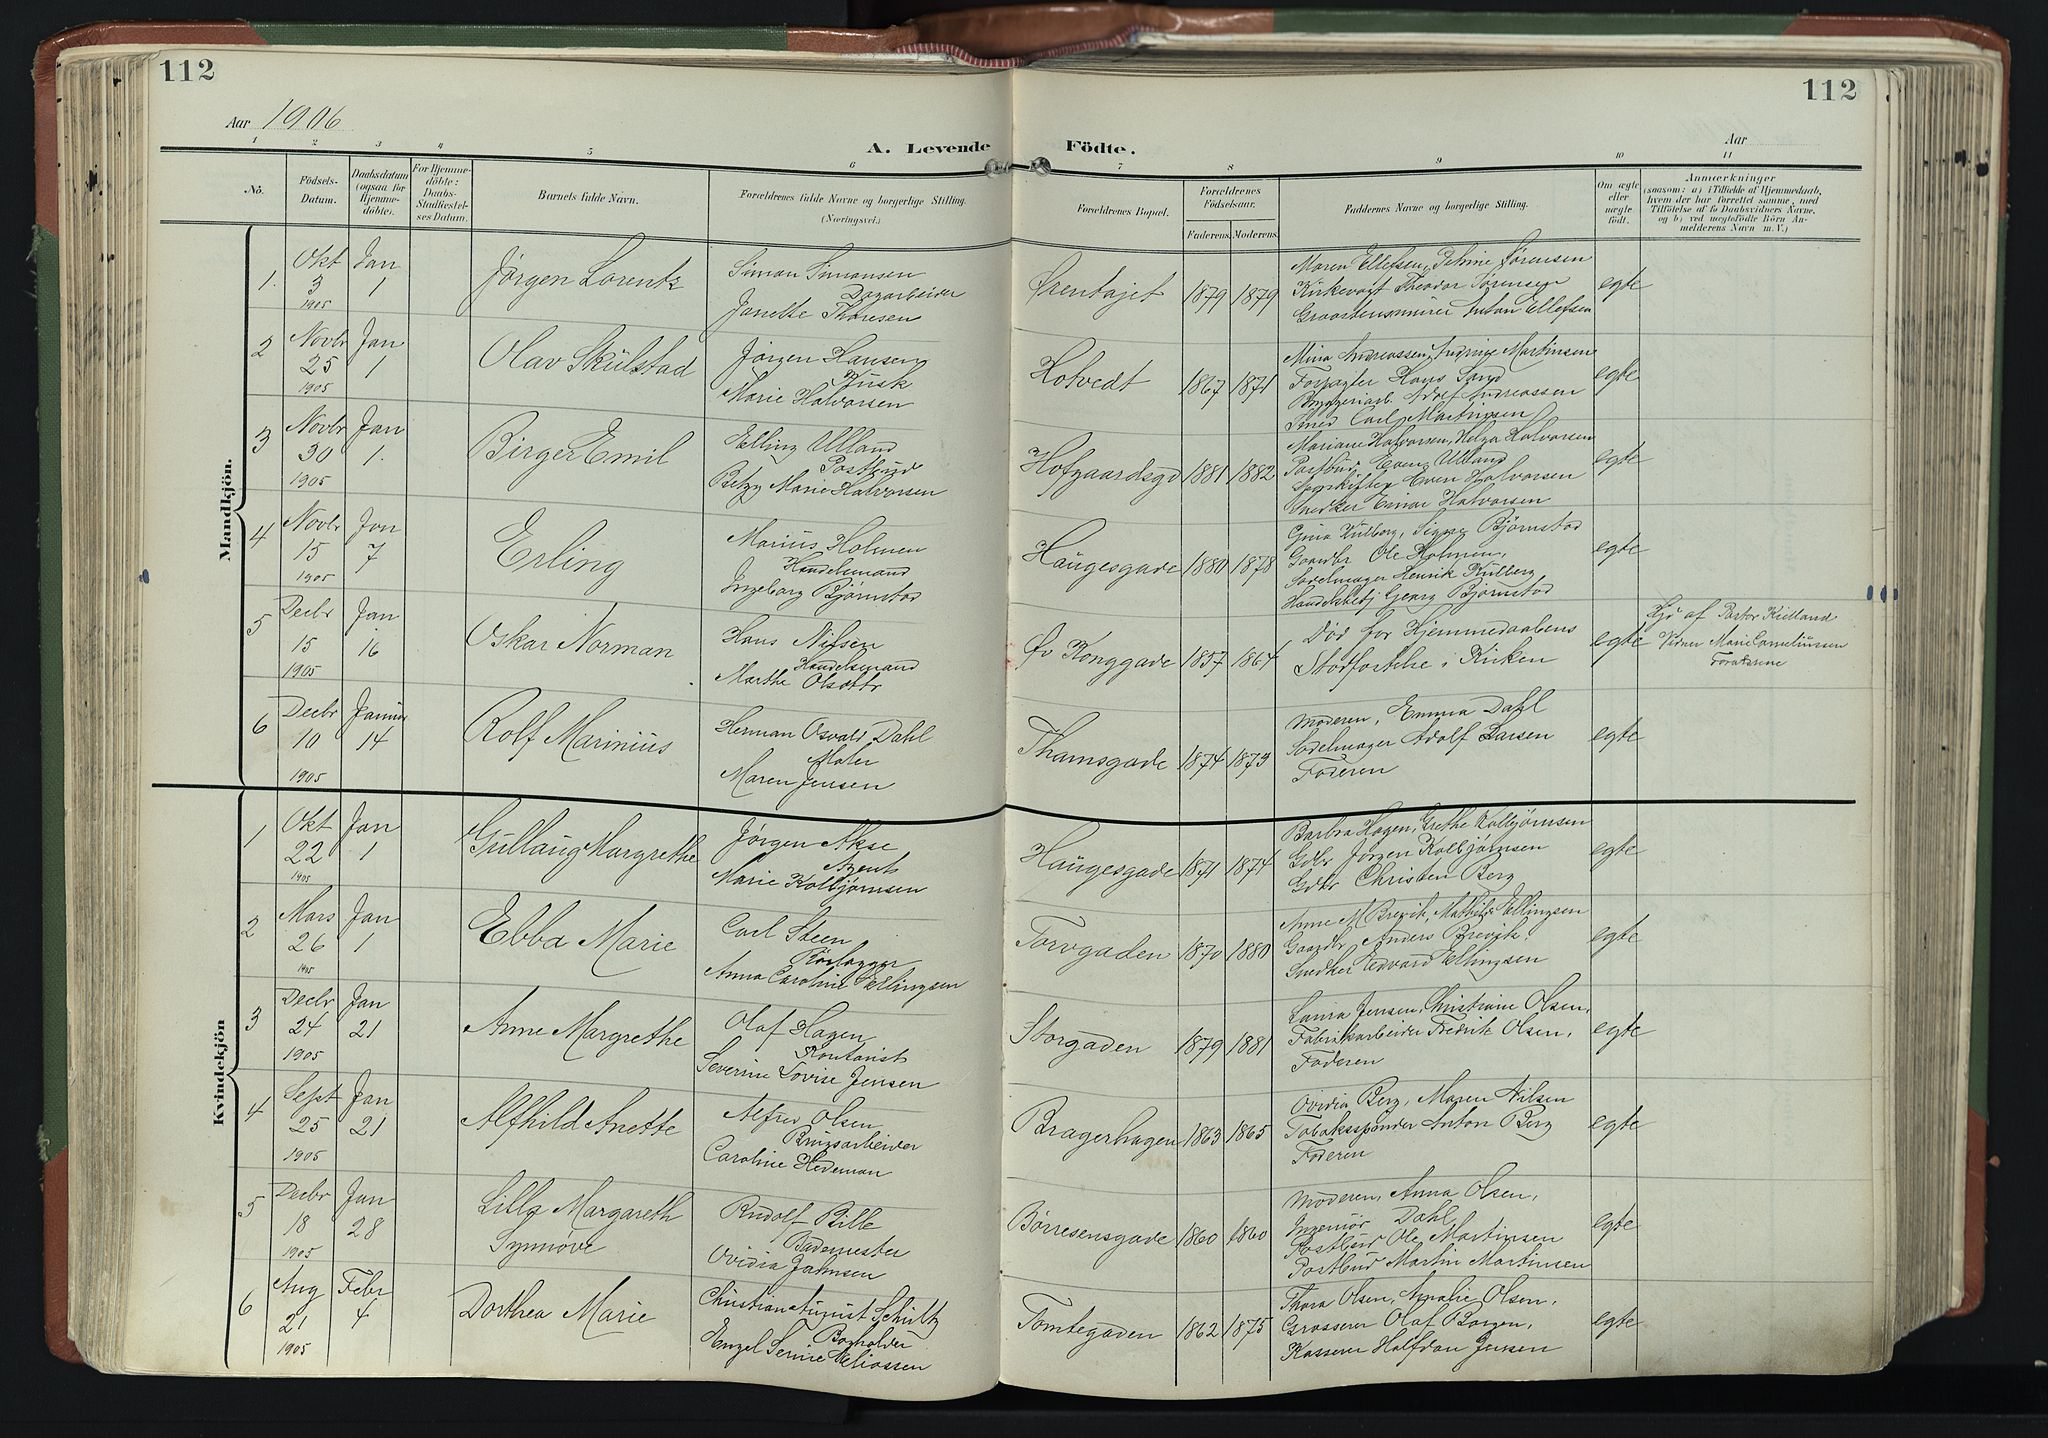 112
112
Aar 1906
Aar
A. Levende Födte.
1 2 3 4 5 6 7 8 9 10 11
No.
Födsels-
Datum.
Daabsdatum
(ogsaa for
Hjemme-
döbte).
For Hjemme-
döbte:
Daabs-
Stadfæstel-
ses Datum.
Barnets fulde Navn.
Forældrenes fulde Navne og borgerlige Stilling.
(Næringsvei.)
Forældrenes Bopæl.
Forældrenes
Födselsaar.
Faderens. Moderens.
Faddernes Navne og borgerlige Stilling.
Om ægte
eller
uægte
födt.
Anmærkninger
(saasom: a) i Tilfælde af Hjemmedaab,
hvem der har forrettet samme, med
Tilföielse af to Daabsvidners Navne,
og b) ved uægtefödte Börn An-
melderens Navn m. V.)
Mandkjön.
1. Okt 3 1905
Jan 1
Jørgen Lorentz
Simon Simonsen
Dagarbeider
Janette Thoresen
1879 1879
Maren Ellefsen, Petrine Sørensen
Kirkevagt Theodor Sørensen
Graastensmurer Anton Ellefsen
egte
2 Novbr 25 1905
Jan 1
Olav Skulstad
Jørgen Hansen
Kusk
Marie Halvorsen
Hotvedt
1867 1871
Mina Andreassen, Martinsen
Forpagter Hans Sand
Bryggeriarb. Adolf Andreassen
Smed Carl Martinsen
egte
3 Novbr 30 1905
Jan 1.
Birger Emil
Elling Ulland
Postbud
Betzy Marie Halvorsen
Hofgaardsgd
1881 1882
Mariane Halvorsen, Helga Halvorsen
Postbud Even Ulland
Sagskifter Even Halvorsen
Snedker Einar Halvorsen
egte
4 Novbr 15 1905
Jan 7
Erling
Marius Holmen
Handelsmand
Ingeborg Bjørnstad
Haugesgade
1880 1878
Gina Kulberg, Signe Bjørnstad
Gaardbr Ole Holmen,
Sadelmager Henrik Kulberg
Handelsbetj Georg Bjørnstad
egte
5 Decbr 15 1905
Jan 16
Oskar Norman
Hans Nilsen
Handelsmand
Marthe Olsdttr
Øv Konggade
1857 1864
Død før Hjemmedaabens
Stadfæstelse i Kirken
egte
Hjd af Pastor Kielland
Vidner Marie Corneliussen
Forældrene
6 Decbr 10 1905
Januar 14
Rolf Marinius
Herman Osvald Dahl
Maler
Maren Jensen
Thamsgade
1874 1873
Moderen, Emma Dahl
Sadelmager Adolf Larsen
Faderen
egte
Kvindekjön
1 Okt 22 1905
Jan 1
Gullaug Margrethe
Jørgen Akse
Agent
Marie Kolbjørnsen
Haugesgade
1871 1874
Barbra Hagen, Grethe Kolbjørnsen
Gdbr Jørgen Kolbjørnsen
Gdbr Christen Berg
egte
2 Mars 26 1905
Jan 1
Ebba Marie
Carl Steen
Anna Caroline Ellingsen
Torvgaden
1870 1880
Anne M Brevik, Mathilde Ellingsen
Gaardbr Anders Brevik.
Snedker Edvard Ellingsen
egte
3 Decbr 24 1905
Jan 21
Anne Margrethe
Olaf Hagen
Kontorist
Severine Lovise Jensen
Storgaden
1879 1881
Laura Jensen, Christiane Olsen,
Fabrikarbeider Fredrik Olsen,
Faderen
egte
4 Sept 25 1905
Jan 21
Alfhild Anette
Alfred Olsen
Brugsarbeider
Caroline Hedeman
Bragerhagen
1863 1865
Ovidia Berg, Maren Nilsen
Tobaksspinder Anton Berg
Faderen
egte
5 Decbr 18 1905
Jan 28
Lilly Margareth
Synnøve
Rudolf Bille
Bademester
Ovidia Jahnsen
Børresensgade
1860 1860
Moderen, Anna Olsen,
Ingeniør Dahl
Postbud Ole Martinsen
Postbud Martin Martinsen
egte
6 Aug 21 1905
Febr 4
Dorthea Marie
Christian August Schultz
Bogholder
Engel Serine Eliassen
Tomtegaden
1862 1875
Thora Olsen, Amalie Olsen,
Grosserer Olaf Borgen,
Kasserer Halfdan Jensen
egte